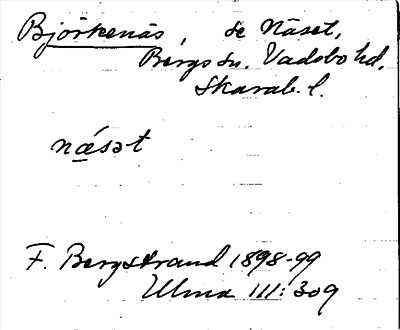 Björkenäs, se Näset,
Bergs sn. Vadsbo hd,
Skarab. l.
näsət
F. Bergstrand 1898-99
Ulma 111: 309